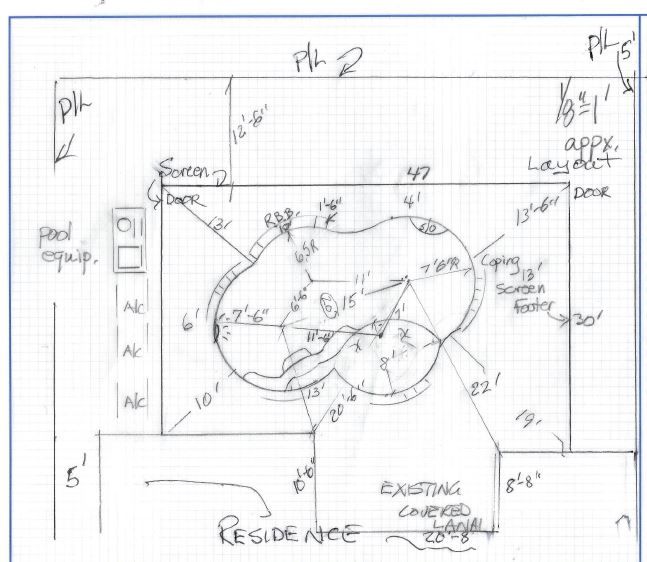 P/L
P/L 5'
P/L
12'-6"
1/8"=1'
appx.
Layout
Screen
47
DOOR
DOOR
13'
R.B.B.
1'-6"
4'
5/0
13'-6"
6'5R
pool
equip.
11'
7'6"R
Coping
13'
Screen
Footer
6'-6"
6
15'
A/c
6'
7'-6"
11'-6"
7'
30'
A/c
8'
22'
10'
13'
20'-6"
A/c
9'
5'
10'-6"
EXISTING
COVERED
LANAI
8'-8"
RESIDENCE
20'-8